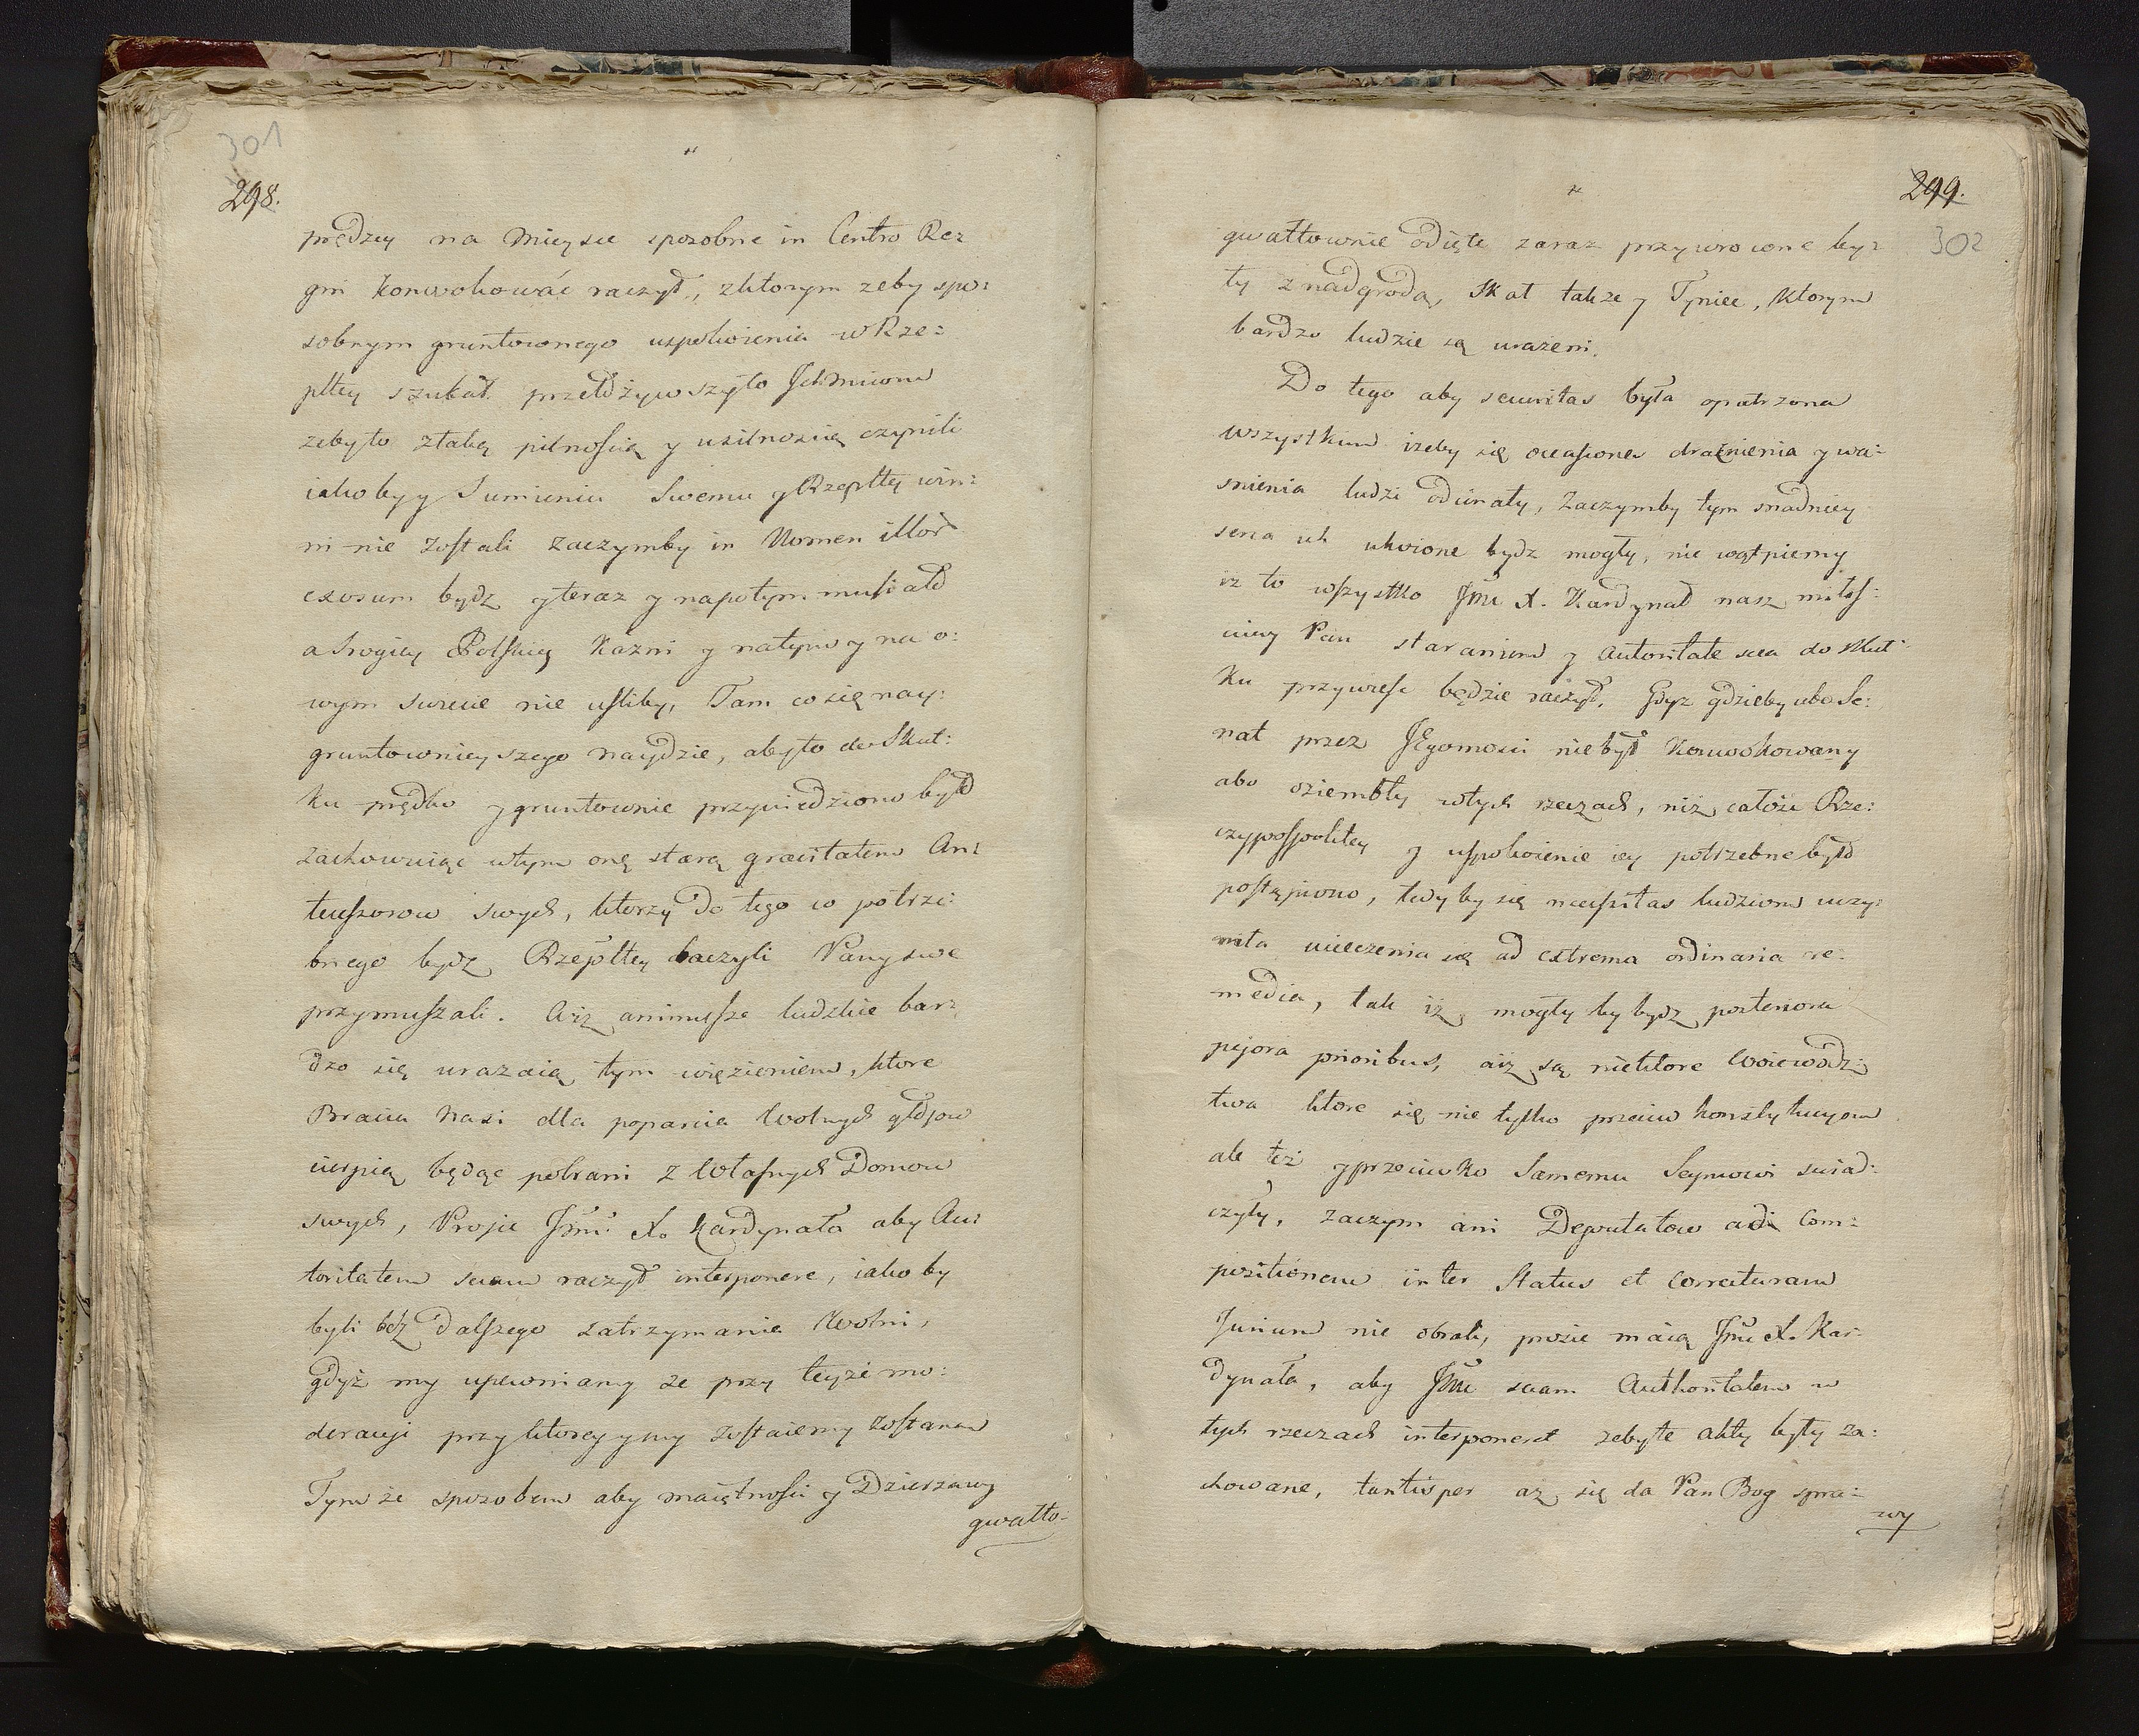 301
298.
prędzey na Mieysce sposobne in Centro Re=
gni konwokować raczył, zktorym zeby spo=
sobnym gruntownego uspokoienia w Rze=
pltey szukał. przełożywszy to Ichmciom
zeby to ztaką pilnością y usilnością czynili
iakoby y Sumieniu Swemu y Rzepltey win=
ni nie zostali zaczymby in Nomen illor
exosum bydz y teraz y napotym musiało
a srogiey Boskiey Kazni y natym y na o=
wym swiecie nie uszliby, Tam co się nay=
gruntownieyszego naydzie, aby to do Skut=
ku prędko y gruntownie przywiedziono było
zachowuiąc wtym onę starą gravitatem An=
tecessorow swych, ktorzy do tego co potrze=
bnego bydz Rzepltey baczyli Pany swe
przymuszali. Aiz animusze ludzkie bar=
dzo się urazaią tym więzieniem, ktore
Bracia Nasi dla poparcia Wolnych głosow
cierpią będąc pobrani z Własnych Domow
swych, Prosic Jmci X. Kardynała aby Au=
toritatem suam raczył interponere, iakoby
byli bez dalszego zatrzymania Wolni,
gdyż my upewniamy ze przy teyze mo=
deracyi przy ktorey y my zostaiemy zostaną
Tymże sposobem aby maiętnosci y Dzierzawy
gwałto-
299.
302
gwałtownie odięte zaraz przywrocone by=
ły z nadgrodą, Skat takze y Tyniec, Ktorym
bardzo ludzie są urazeni.
Do tego aby securitas była opatrzona
wszystkim izeby się occasiones draznienia y wa=
snienia ludzi odcinały, Zaczymby tym snadniey
serca ich ukoione bydz mogły, nie wątpiemy
iz to wszystko Jmc X. Kardynał nasz miłos=
ciwy Pan staraniem y Autoritate sua do Skut=
Ku przywiesc będzie raczył. Gdyz gdzieby abo Se=
nat przez JEgomosci nie był Konwokowany
abo oziemble wtych rzeczach, niz całosci Rze=
czypospolitey y uspokoienie iey potrzebne było
postępiono, tedy by się necessitas ludziom uczy=
niła uieczenia się ad extrema ordinaria re=
media, tak iz mogły by bydz posteriora
pejora prioribus, aiz są niektore Woiewodz=
twa ktore się nie tylko przeciw konstytucyom
ale też y przeciwko Samemu Seymowi swiad=
czyły, zaczym ani Deputatow ad Com=
positionem inter Status et Correcturam
Jurium nie obrali, prosic maią Jmc X. Kar=
dynała, aby Jmc suam Authoritatem w
tych rzeczach interponeret zebyte akty były za=
chowane, tantisper az się da Pan Bog spra=
wy